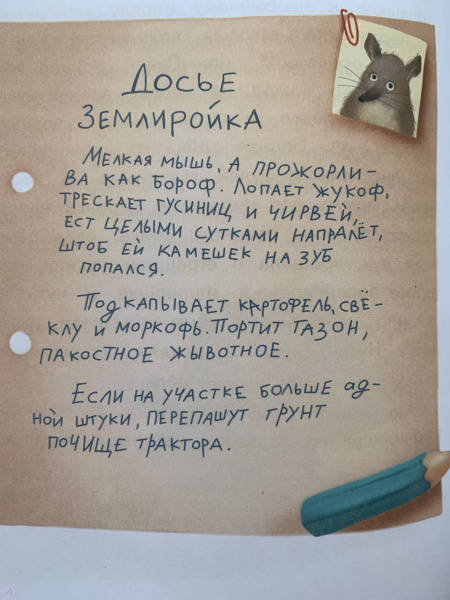 Досье
землиройка
Мелкая мышь, а прожорли-
ва как бороф. Лопает жукоф,
трескает гусиниц и чирвей,
ест целыми сутками напралёт,
штоб ей камешек на зуб
попался.
Подкапывает картофель, свё-
клу и моркофь. Портит газон,
пакостное жывотное.
Если на участке больше ад-
ной штуки, перепашут грунт
почище трактора.